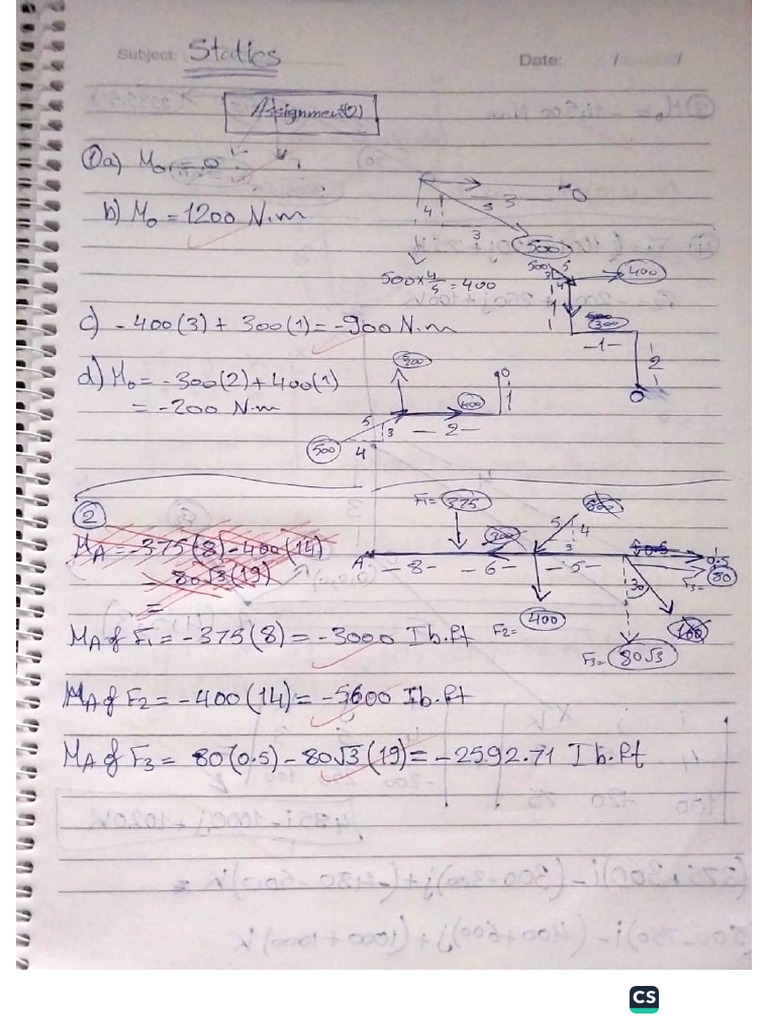 Subject: Statics
Date: / /
Assignment(2)
① a) Mo = 0
b) Mo = 1200 N.m
4
3
3
O
500
500×4/5 = 400
500
5
3
4
400
1
300
-1-
2
O
c) -400(3) + 300(1) = -900 N.m
d) Mo = -300(2)+400(1)
= -200 N.m
300
400
O
1
5
3
4
-2-
500
②
F1= 375
500
5
4
3
300
MA = -375(8) - 400(14)
- 80√3(19)
=
A
-8-
-6-
-5-
0.5
80
30
F3=
160
F2=
400
F3= 80√3
MA of F1 = -375(8) = -3000 Ib.ft
MA of F2 = -400(14) = -5600 Ib.ft
MA of F3 = 80(0.5) - 80√3(19) = -2592.71 Ib.ft
CS